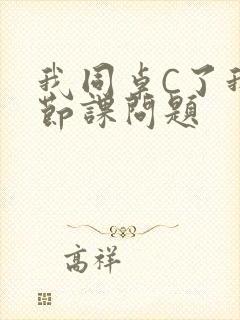 我同卓C了我
節課問題
高祥